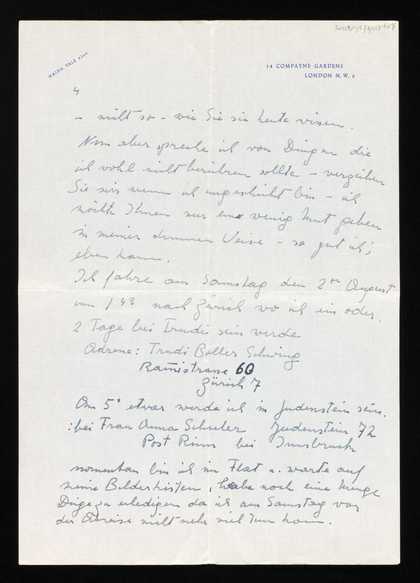 MAIDA VALE
14 COMPAYNE GARDENS
LONDON N.W. 6
4
– nicht so – wie Sie sie heute wissen.
Nun aber spreche ich von Dingen die
ich wohl nicht berühren sollte – verzeihen
Sie mir wenn ich ungeschickt bin – ich
möcht Ihnen nur eine wenig Mut geben
in meiner dummen Weise – so gut ich's
eben kann.
Ich fahre am Samstag den 2ten August
um 1 43 nach Zürich wo ich ein oder
2 Tage bei Trudi sein werde
Adresse: Trudi Boller Schwing
Ramistrasse 60
Zürich 7
Am 5° etwa werde ich in Judenstein sein.
: bei Frau Anna Schuler Judenstein 72
Post Rinn bei Innsbruck
momentan bin ich im Flat u. warte auf
meine Bilderkisten, habe noch eine Menge
Dinge zu erledigen da ich am Samstag vor
der Abreise nicht mehr viel tun kann.